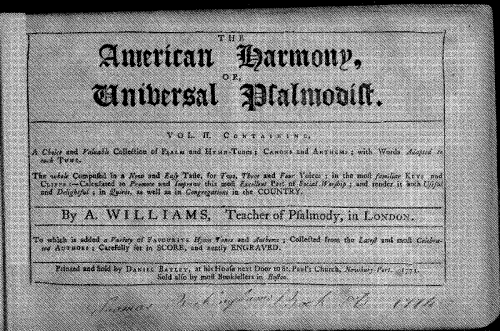 THE
American Harmony,
OR,
Universal Psalmodist.
VOL. II. CONTAINING,
A Choice and Valuable Collection of PSALM and HYMN-TUNES; CANONS and ANTHEMS; with Words Adapted to
each TUNE.
The whole Composed in a New and Easy Taste, for Two, Three and Four Voices; in the most Familiar KEYS and
CLIFFS:—Calculated to Promote and Improve this most Excellent Part of Social Worship; and render it both Useful
and Delightful; in Quires, as well as in Congregations in the COUNTRY.
By A. WILLIAMS, Teacher of Psalmody, in LONDON.
To which is added a Variety of FAVOURITE Hymn Tunes and Anthems; Collected from the Latest and most Celebra-
ted AUTHORS; Carefully set in SCORE, and neatly ENGRAVED.
Printed and Sold by DANIEL BAYLEY, at his House next Door to St. Paul's Church, Newbury Port. 1771.
Sold also by most Booksellers in Boston.